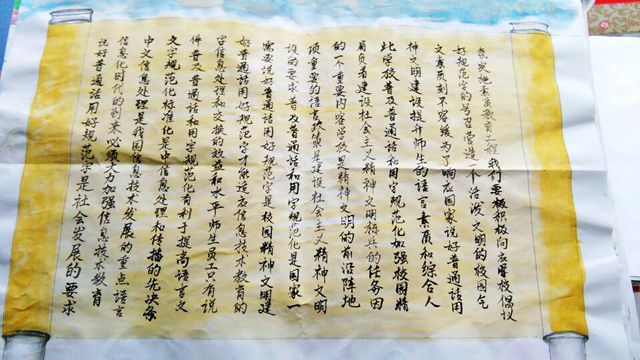 说好普通话用好规范字是社会发展的要求
信息化时代的到来必须大力加强信息技术教育
中文信息处理是我国信息技术发展的重点语言
文字规范化标准化是中信息处理和传播的先决条
件普及普通话和用字规范化有利于提高语言文
字信息处理和交换的效益和水平师生员工只有说
好普通话用好规范字才能适应信息技术教育的
需要说好普通话用好规范字是校园精神文明建
设的要求普及普通话和用字规范化是国家一
项重要的语言政策是建设社会主义精神文明
的不重要内容学校是精神文明的前沿阵地
肩负着建设社会主义精神文明标兵的任务因
此学校普及普通话和用字规范化加强校园精
神文明建设提升师生的语言素质和综合人
文素质刻不容缓为了响应国家说好普通话用
好规范字的号召营造一个活泼文明的校园气
地素质教育工程我们要极积极向应学校倡议